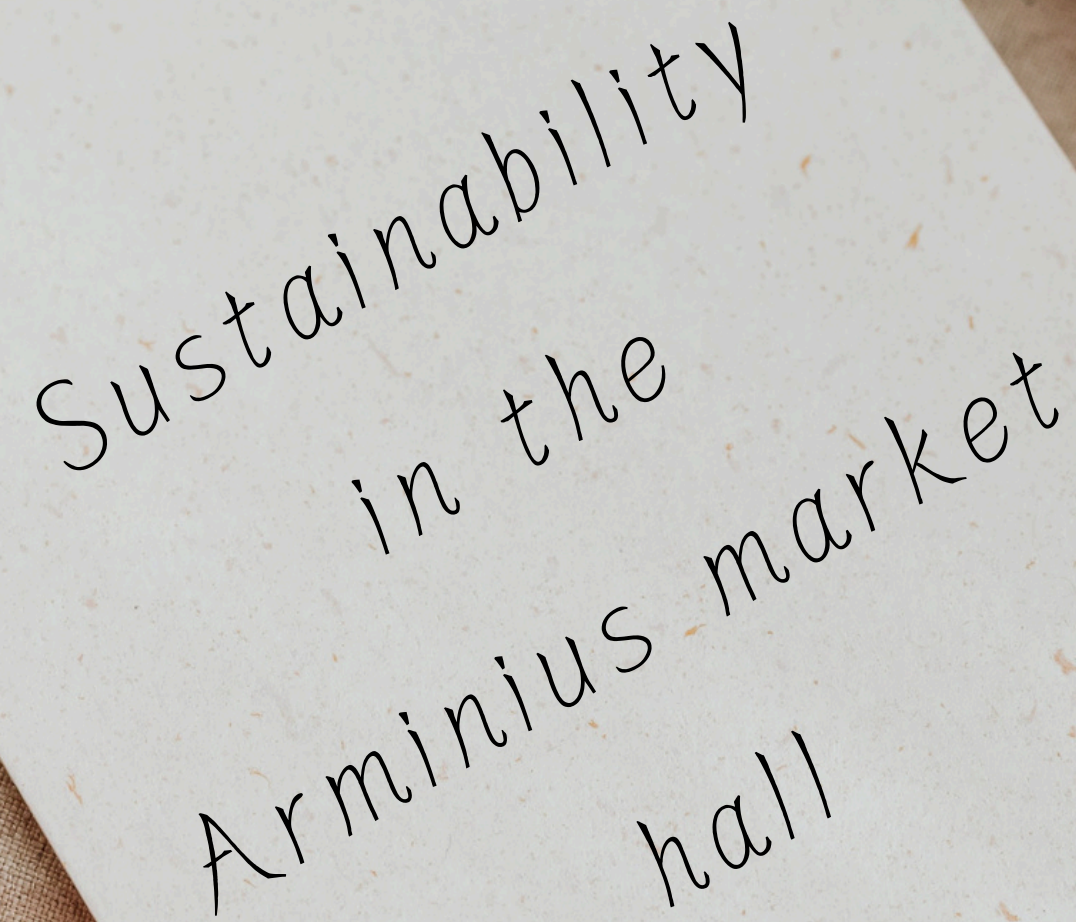 Sustainability
in the
Arminius market
hall